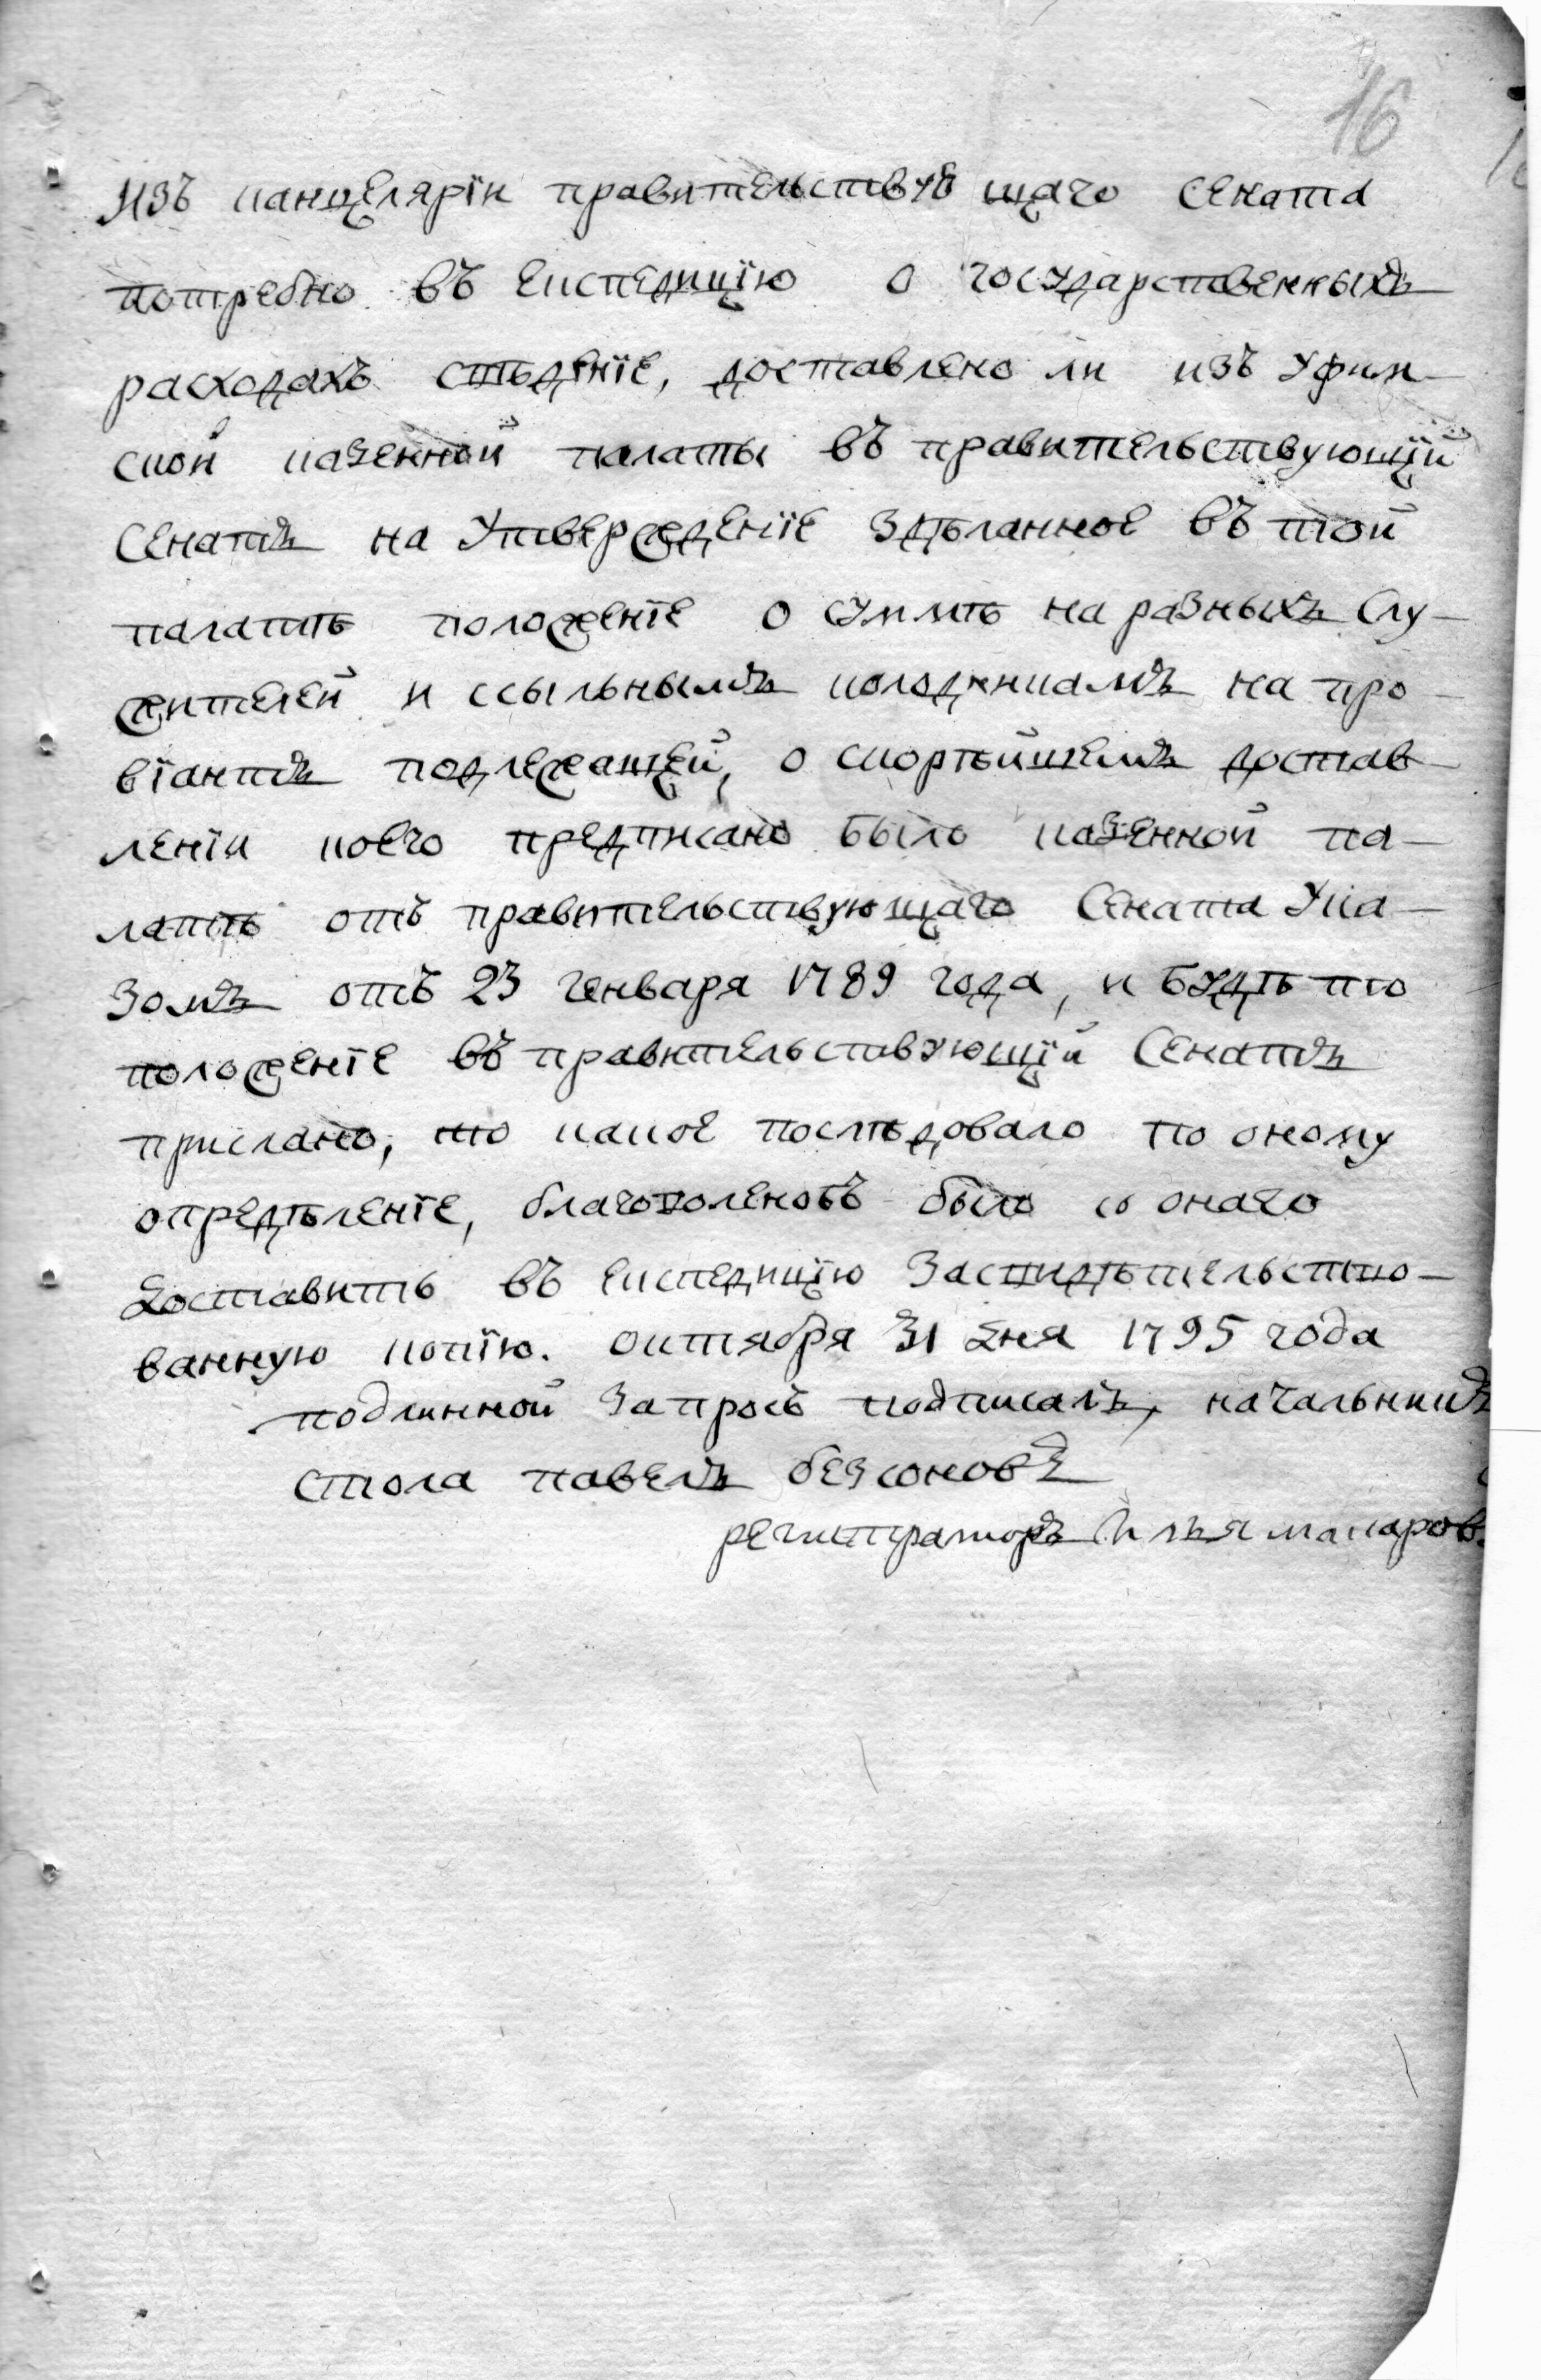 16
Изъ канцелярїи правительствую щаго Сената
потребно въ експедицїю о государственныхъ
расходахъ сведенїе, доставлено ли изъ Уфим-
ской казенной палаты въ правительствующїй
Сенатъ на Утвержденїе Зделанное въ той
палатѣ положенїе о суммѣ на разныхъ Слу-
жителей и ссыльнымъ колодникамъ на про-
вїантъ подлежащей, о скорѣйшемъ достав-
ленїи коего предписано было казенной па-
латѣ отъ правительствующаго Сената Ука-
зомъ отъ 23 генваря 1789 года, и будѣ то
положенїе въ правительствующїй Сенатъ
прислано, то какое последовало по оному
определенїе, благоволеноъ было съ онаго
Доставить въ експедицїю Засвидѣтельство-
ванную копїю. октября 31 Дня 1795 года
подлинной Запросъ подписалъ, начальникъ
стола павелъ безсоновъ
регистраторъ Илья макаров.